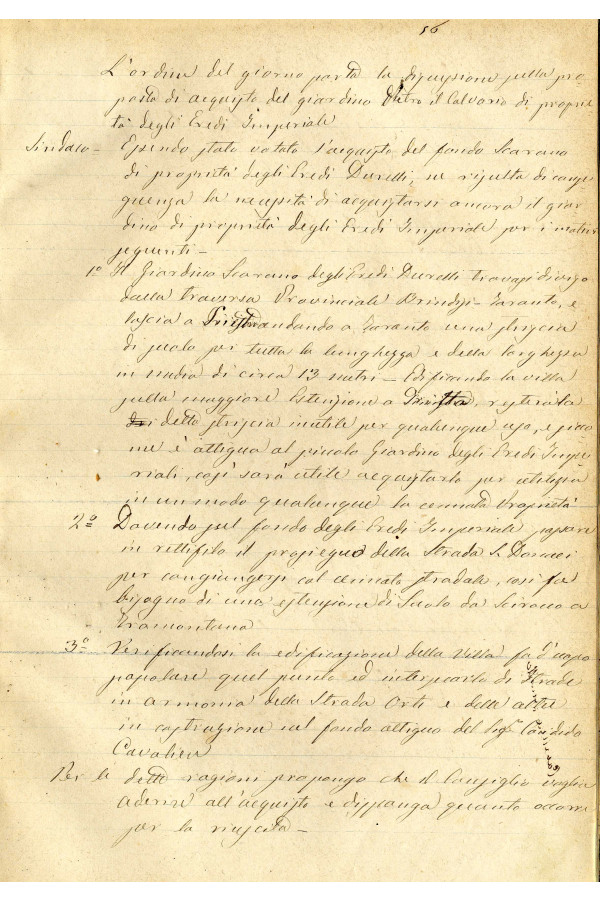 56
L'ordine del giorno porta la discussione sulla pro-
posta di acquisto del giardino dietro il Calvario di proprie-
tà degli Eredi Imperiale
Sindaco - Essendo stato votato l'acquisto del fondo Scarano
di proprietà degli Eredi Durelli, ne risulta di conse-
guenza la necessità di acquistarsi ancora il giar-
dino di proprietà degli Eredi Imperiale per i motivi
seguenti -
1º Il Giardino Scarano degli Eredi Durelli trovasi diviso
dalla traversa Provinciale Brindisi - Taranto, e
lascia a andando a Taranto una striscia
di suolo per tutta la lunghezza e della larghezza
in media di circa 13 metri - Edificando la villa
sulla maggiore Estenzione a restarà la
detta striscia inutile per qualunque uso, e sicco
me è attigua al piccolo Giardino degli Eredi Impe
riali, così sarà utile acquistarlo per utilizzare
in un modo qualunque la cennata Proprietà
2º Dovendo sul fondo degli Eredi Imperiale passare
in rettifilo il prosieguo della Strada S. Donaci
per congiungersi col cennato stradale, così fa
bisogno di una estenzione di Suolo da Scirocco a
Tramontana
3º Verificandosi la edificazione della Villa fa d'uopo
popolare quel punto ed intersecarlo di Strade
in armonia della Strada Orti e delle altre
in costruzione nel fondo attiguo del Sigr Candido
Cavaliere
Per le dette ragioni propongo che il Consiglio voglia
aderire all'acquisto e disponga quanto occorre
per la riuscita -